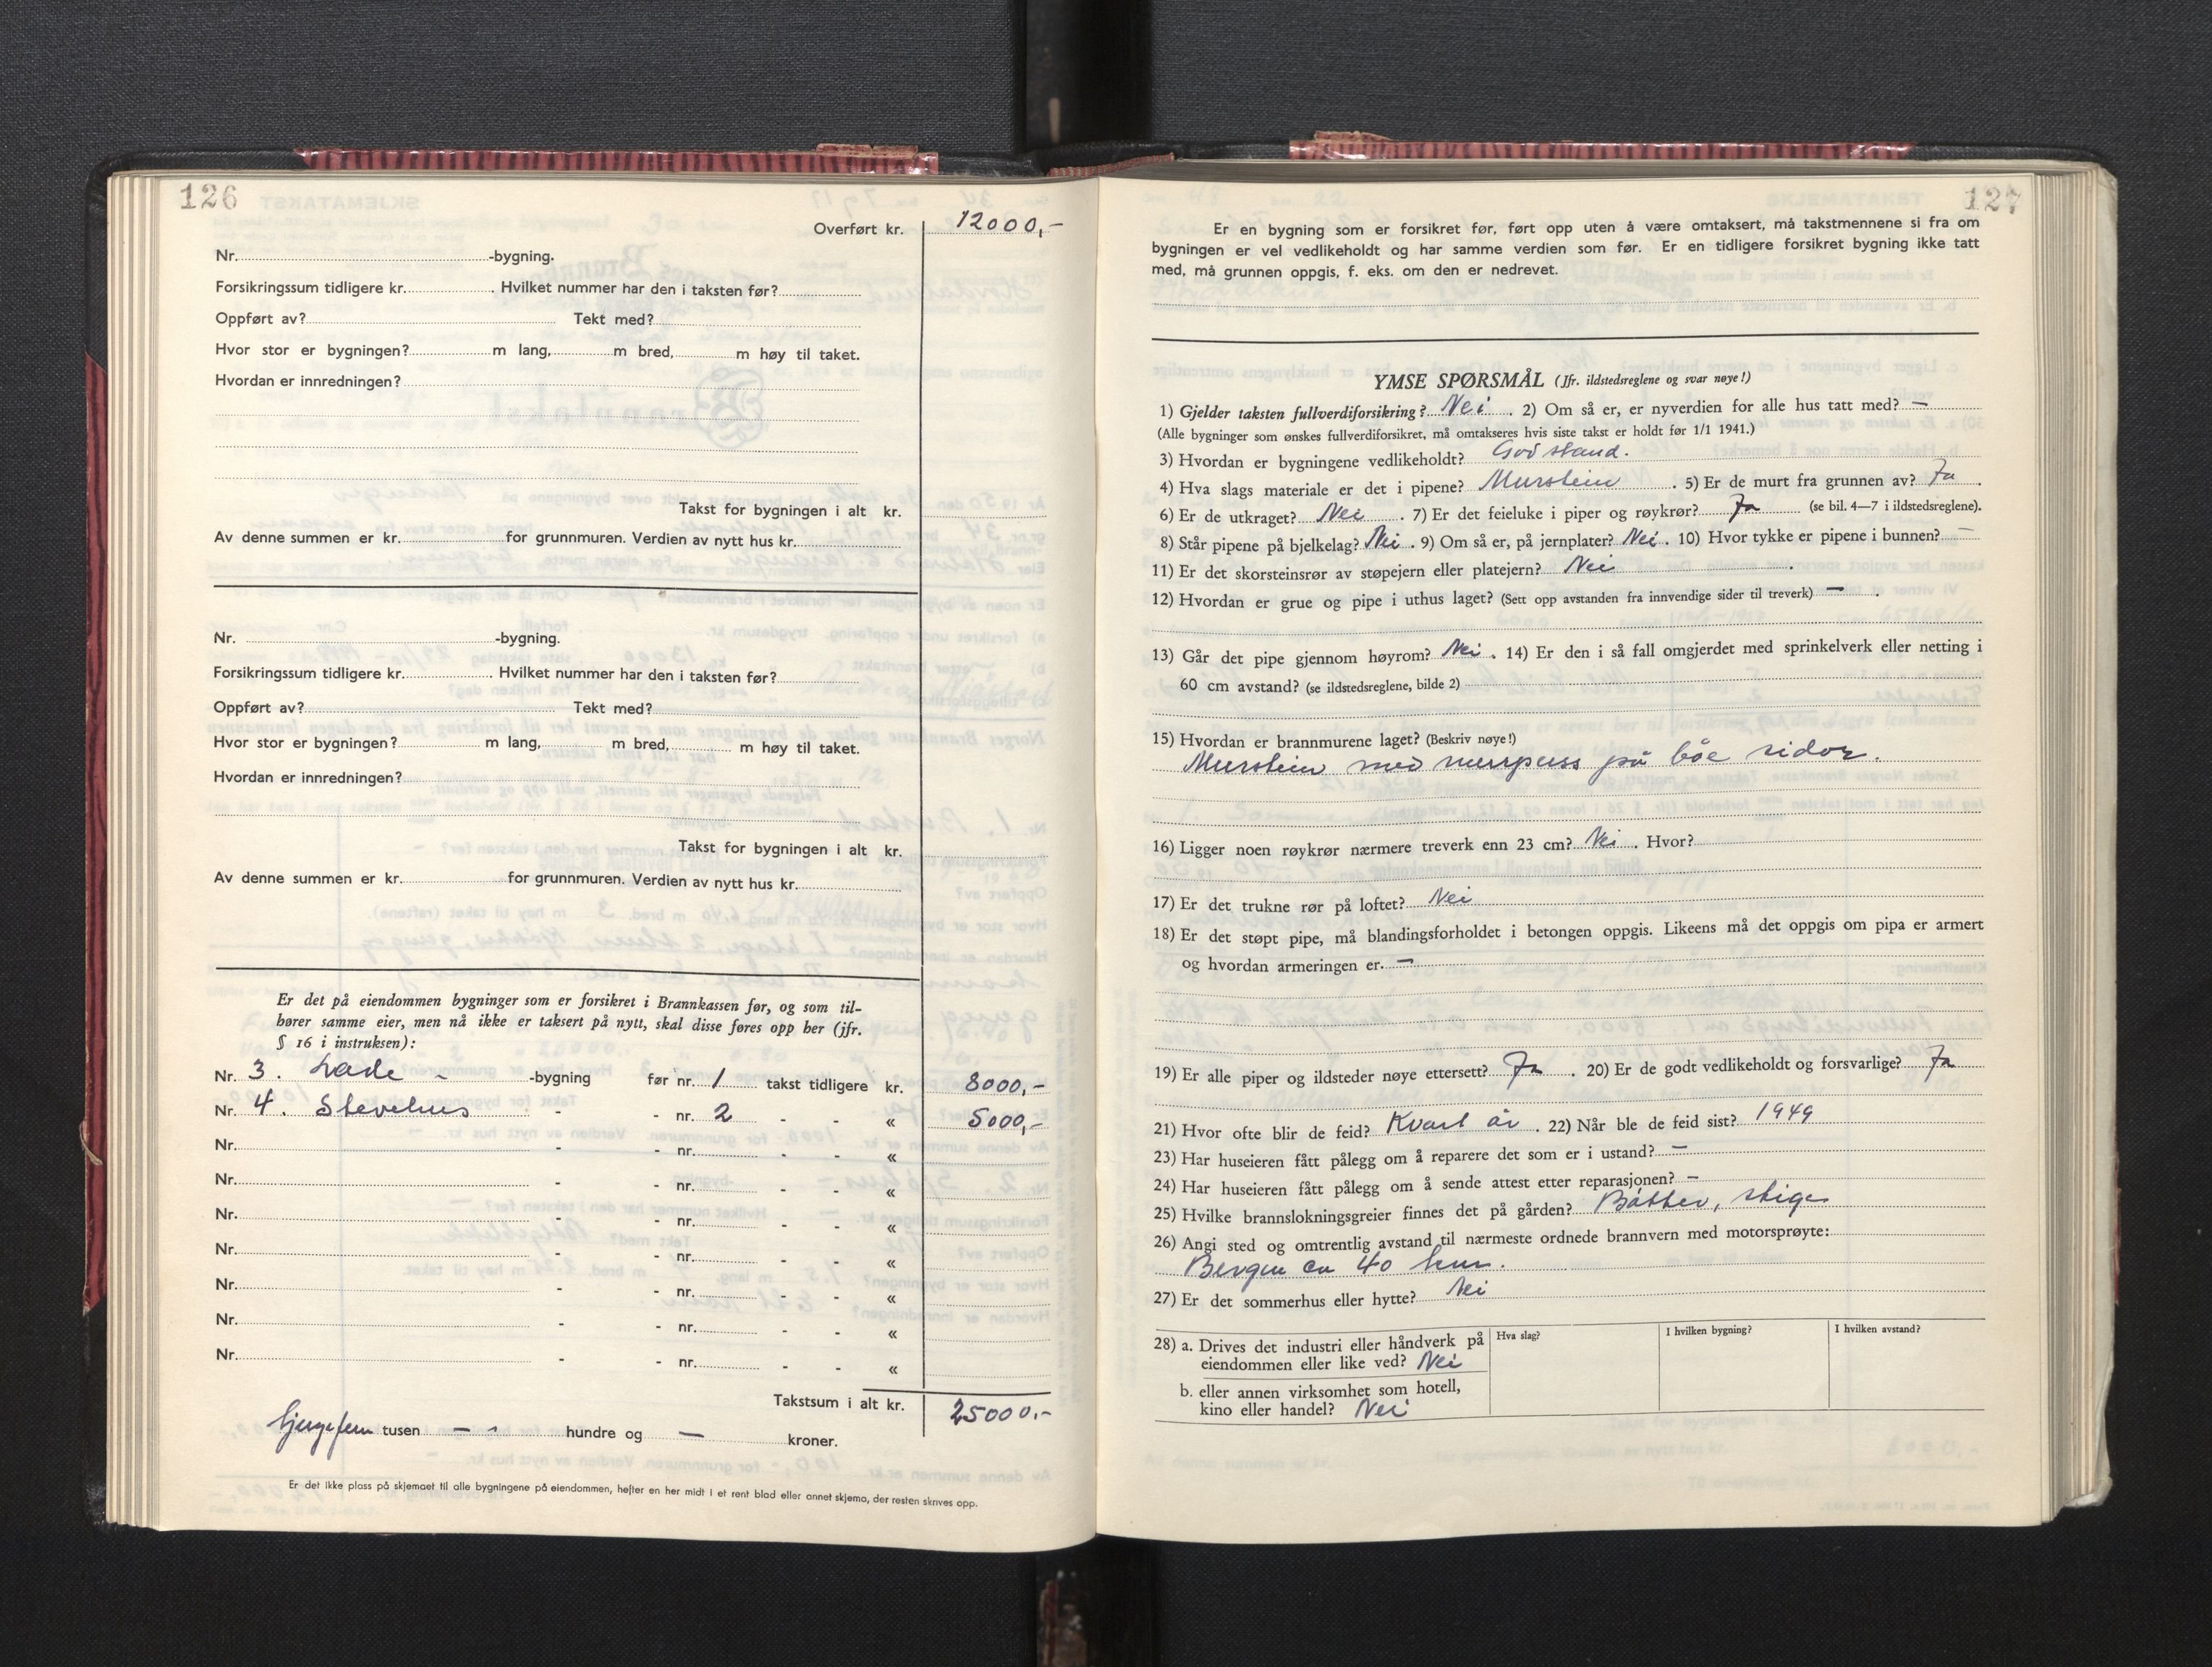 126
Overført kr. 12000,-
Nr. -bygning.
Forsikringssum tidligere kr. . Hvilket nummer har den i taksten før?
Oppført av? Tekt med?
Hvor stor er bygningen? m lang, m bred, m høy til taket.
Hvordan er innredningen?
Takst for bygningen i alt kr.
Av denne summen er kr. for grunnmuren. Verdien av nytt hus kr.
Nr. -bygning.
Forsikringssum tidligere kr. . Hvilket nummer har den i taksten før?
Oppført av? Tekt med?
Hvor stor er bygningen? m lang, m bred, m høy til taket.
Hvordan er innredningen?
Takst for bygningen i alt kr.
Av denne summen er kr. for grunnmuren. Verdien av nytt hus kr.
Er det på eiendommen bygninger som er forsikret i Brannkassen før, og som til-
hører samme eier, men nå ikke er taksert på nytt, skal disse føres opp her (jfr.
§ 16 i instruksen):
Nr. 3. Løde - -bygning før nr. 1 takst tidligere kr. 8000,-
Nr. 4. Stovehus - - nr. 2 - - « 5000,-
Nr. - - nr. - - «
Nr. - - nr. - - «
Nr. - - nr. - - «
Nr. - - nr. - - «
Nr. - - nr. - - «
Nr. - - nr. - - «
Nr. - - nr. - - «
Takstsum i alt kr. 25000,-
tjugefem tusen — - hundre og — kroner.
Er det ikke plass på skjemaet til alle bygningene på eiendommen, hefter en her midt i et rent blad eller annet skjema, der resten skrives opp.
127
Er en bygning som er forsikret før, ført opp uten å være omtaksert, må takstmennene si fra om
bygningen er vel vedlikeholdt og har samme verdien som før. Er en tidligere forsikret bygning ikke tatt
med, må grunnen oppgis, f. eks. om den er nedrevet.
YMSE SPØRSMÅL (Jfr. ildstedsreglene og svar nøye!)
1) Gjelder taksten fullverdiforsikring? Nei . 2) Om så er, er nyverdien for alle hus tatt med? —
(Alle bygninger som ønskes fullverdiforsikret, må omtakseres hvis siste takst er holdt før 1/1 1941.)
3) Hvordan er bygningene vedlikeholdt? God stand.
4) Hva slags materiale er det i pipene? Murstein . 5) Er de murt fra grunnen av? Ja .
6) Er de utkraget? Nei . 7) Er det feieluke i piper og røykrør? Ja (se bil. 4—7 i ildstedsreglene).
8) Står pipene på bjelkelag? Nei . 9) Om så er, på jernplater? Nei . 10) Hvor tykke er pipene i bunnen? —
11) Er det skorsteinsrør av støpejern eller platejern? Nei .
12) Hvordan er grue og pipe i uthus laget? (Sett opp avstanden fra innvendige sider til treverk) — .
13) Går det pipe gjennom høyrom? Nei . 14) Er den i så fall omgjerdet med sprinkelverk eller netting i
60 cm avstand? (se ildstedsreglene, bilde 2)
15) Hvordan er brannmurene laget? (Beskriv nøye!)
Murstein med murpuss på båe sidor.
16) Ligger noen røykrør nærmere treverk enn 23 cm? Nei . Hvor?
17) Er det trukne rør på loftet? Nei
18) Er det støpt pipe, må blandingsforholdet i betongen oppgis. Likeens må det oppgis om pipa er armert
og hvordan armeringen er. —
19) Er alle piper og ildsteder nøye ettersett? Ja . 20) Er de godt vedlikeholdt og forsvarlige? Ja
21) Hvor ofte blir de feid? Kvart år . 22) Når ble de feid sist? 1949
23) Har huseieren fått pålegg om å reparere det som er i ustand? —
24) Har huseieren fått pålegg om å sende attest etter reparasjonen? —
25) Hvilke brannslokningsgreier finnes det på gården? Bøtter, stige
26) Angi sted og omtrentlig avstand til nærmeste ordnede brannvern med motorsprøyte:
Bergen ca 40 km.
27) Er det sommerhus eller hytte? Nei
28) a. Drives det industri eller håndverk på Hva slag? I hvilken bygning? I hvilken avstand?
eiendommen eller like ved? Nei
b. eller annen virksomhet som hotell,
kino eller handel? Nei